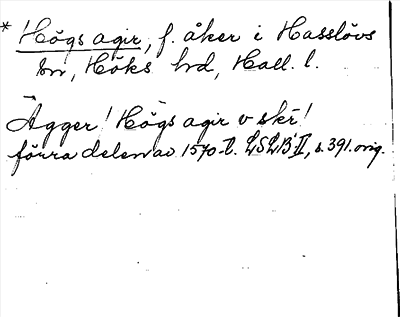 * Högs agir, f. åker i Hasslövs
sn, Höks hd, Hall. l.
Ägger! Högs agir v skr!
förra delen av 1570-t. LSLB II, s. 391. orig.